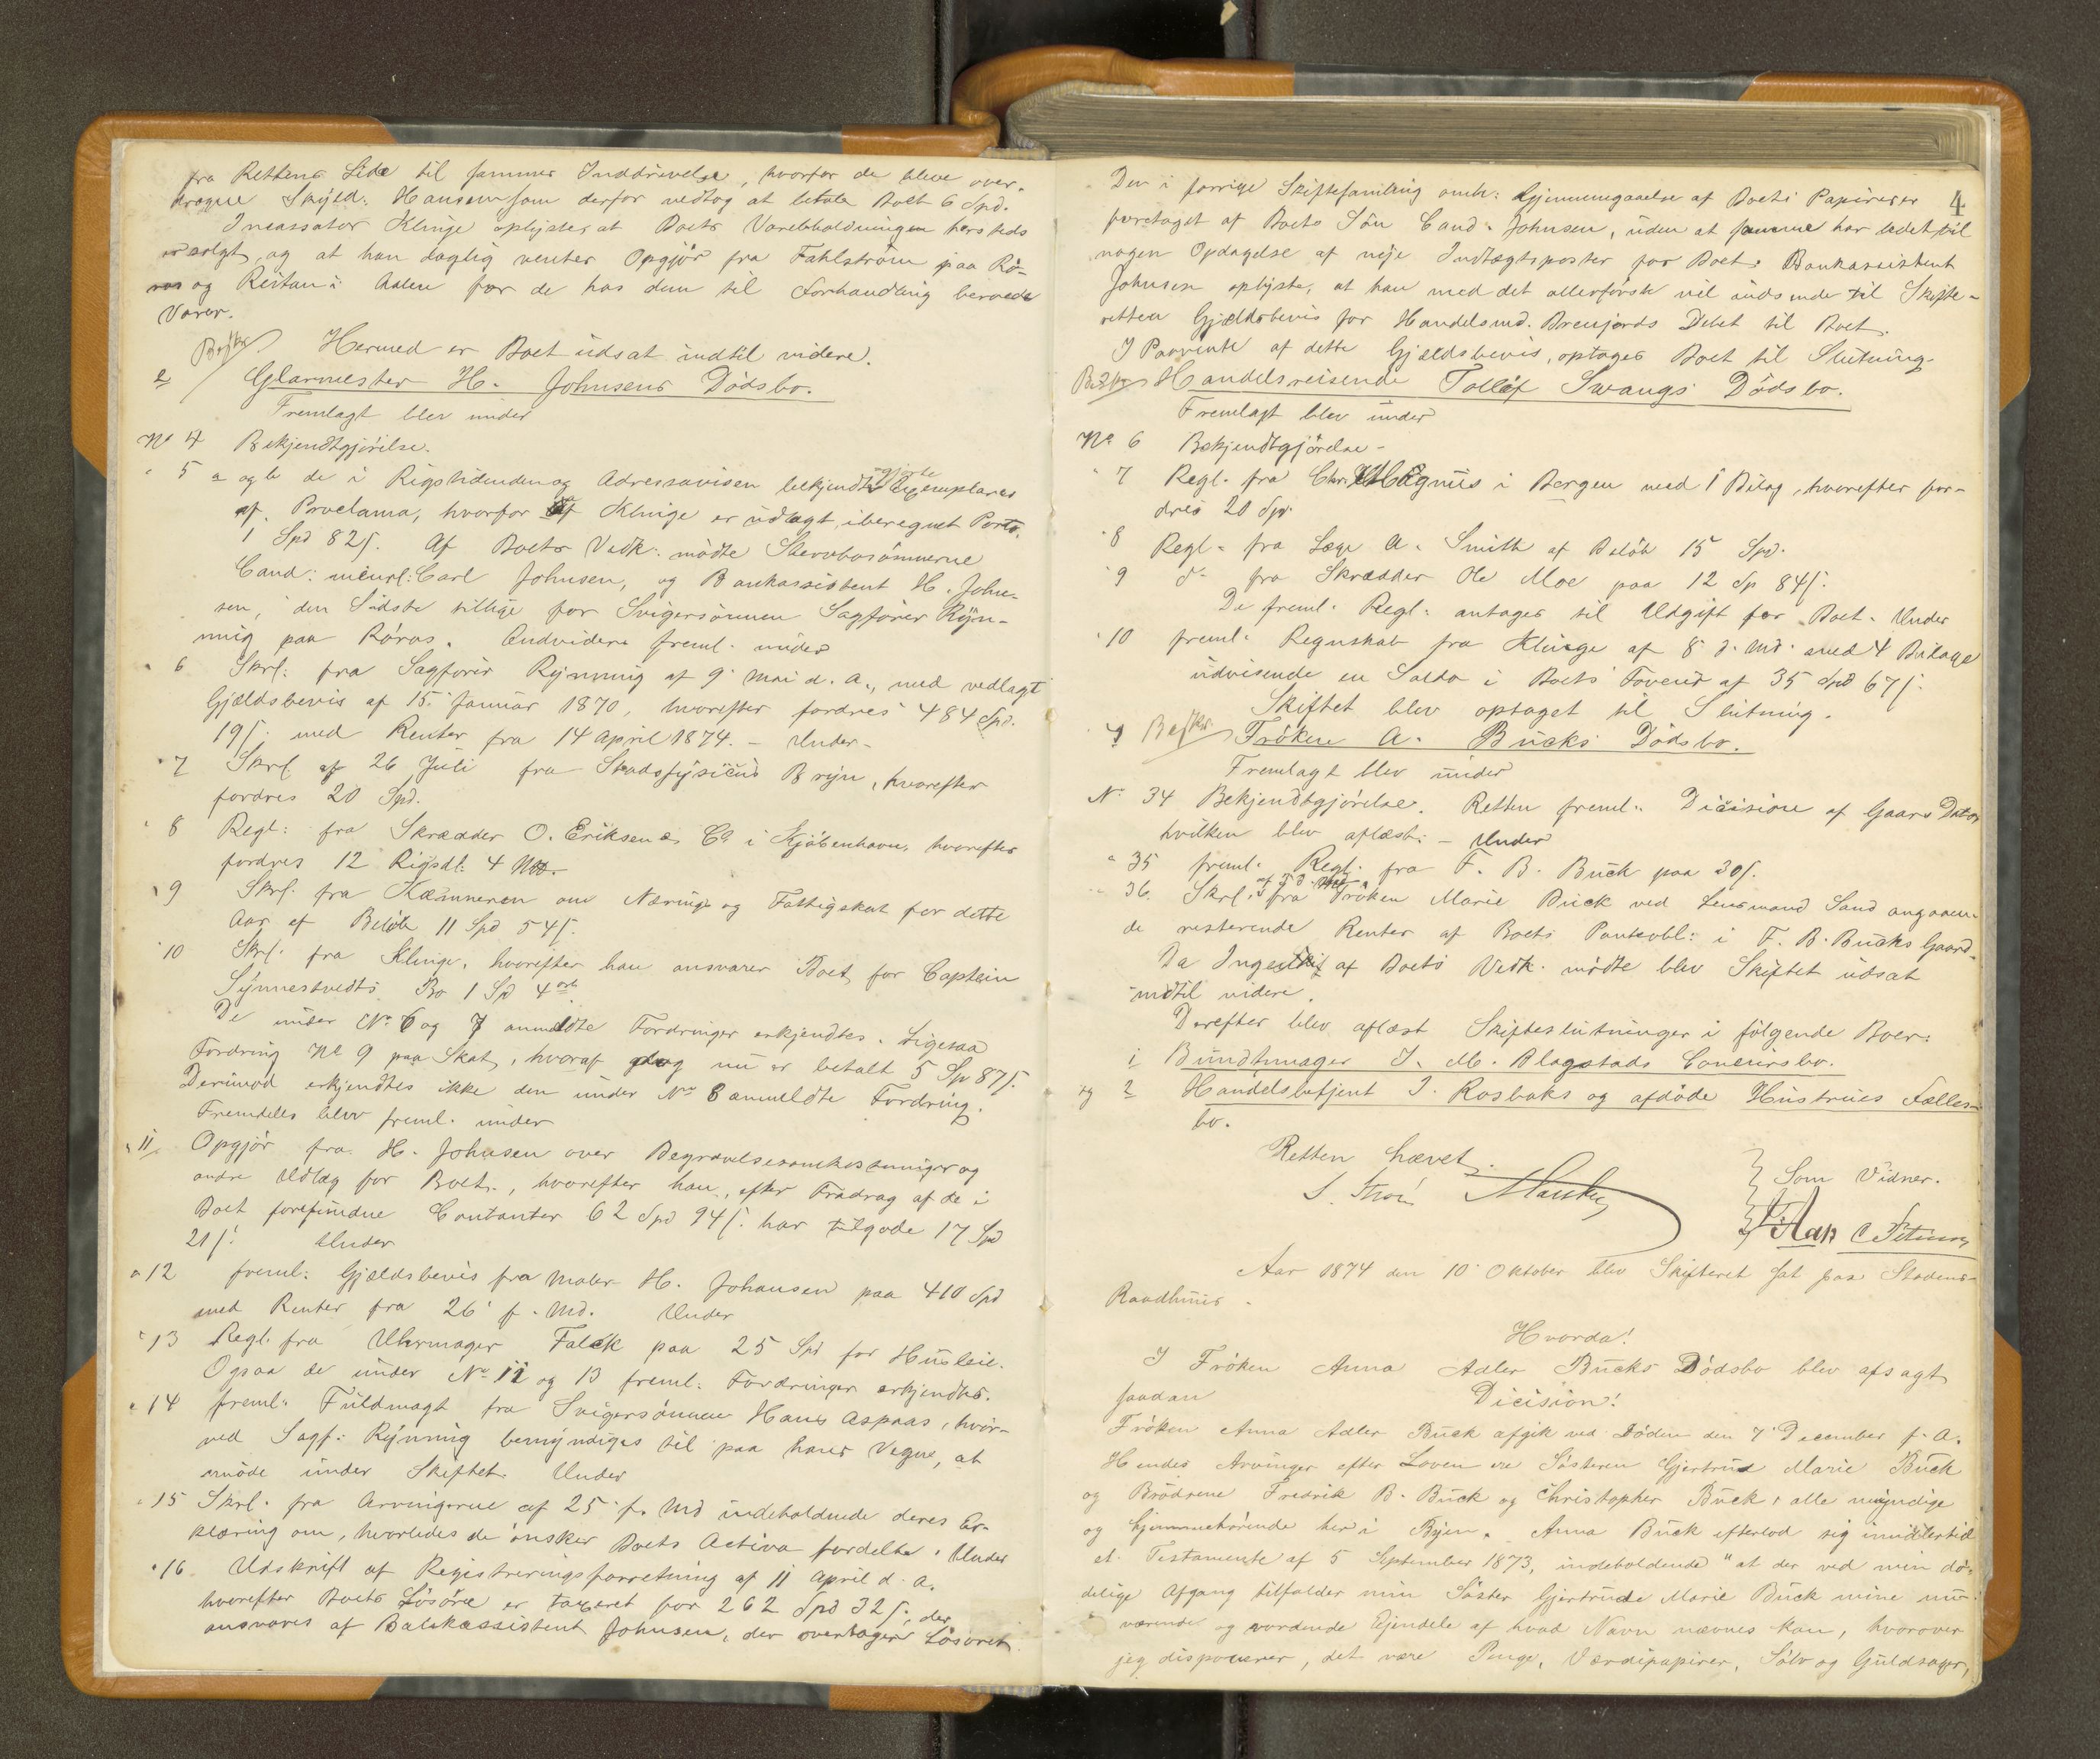 fra Rettens Side til sammes Inddrivelse, hvorfor de bleve over-
dragne Skifed: Hansen som derfor vedtog at betale Boet 6 Spd.
Incassator Klinge oplyste, at Boets Varebeholdninger hersteds
er solgt, og at han daglig venter Opgjör fra Fahlström paa Rö-
ros og Ristan i Aalen for de hos dem til Forhandling beroede
Varer.
Beskr Hermed er Boet udsat indtil videre.
2 Glarmester H. Johnsens Dödsbo.
Fremlagt blev under
No 4 Bekjendtgjörelse.
" 5 a og b de i Rigstidenden og Adresseavisen bekjendtgjorte Exemplarer
af Proclama, hvorfor af Klinge er udlagt, iberegnet Porto,
1 Spd 82 s. Af Boets Vedk: mödte Stervbosönnerne
Cand: Carl Johnsen, og Bankassistent H. John-
sen, den Sidste tillige for Svigersönnen Sagförer Ryn-
ning paa Röros. Endvidere freml. under
" 6 Skrl: fra Sagförer Rynning af 9 Mai d. A., med vedlagt
Gjældsbevis af 15 Januar 1870, hvorefter fordres 484 Spd.
19 s. med Renter fra 14 April 1874. - Under -
" 7 Skrl af 26 Juli fra Stadsfysicus Bryn, hvorefter
fordres 20 Spd.
" 8 Regl: fra Skrædder O. Eriksen & Co i Kjöbenhavn, hvorefter
fordres 12 Rigsdl: 4 Mk.
" 9 Skrl. fra Kæmneren om Nærings og Fattigskat for dette
Aar af Belöb 11 Spd 54 s.
" 10 Skrl. fra Klinge, hvorefter han ansvarer Boet for Captein
Synnestvedts Bo 1 Sp 4 ort.
De under No 6 og 7 anmeldte Fordringer erkjendtes. Ligesaa
Fordring No 9 paa Skat, hvoraf dog nu er betalt 5 Sp 87 s.
Derimod erkjendtes ikke den under No 8 anmeldte Fordring.
Fremdeles blev freml. under
" 11 Opgjör fra H. Johnsen over Begravelsesomkostninger og
andre Udlæg for Boet, hvorefter han, efter Fradrag af de i
Boet forefundne Contanter 62 Spd 94 s. har tilgode 17 Spd
21 s. Under
" 12 freml: Gjældsbevis fra Maler H. Johansen paa 410 Spd
med Renter fra 26 f. Md. Under
" 13 Regl. fra Uhrmager Falck paa 25 Spd for Husleie.
Ogsaa de under No 12 og 13 freml. Fordringer erkjendtes.
" 14 freml: Fuldmagt fra Svigersönnen Hans Aspaas, hvor-
ved Sagf: Rynning bemyndiges til paa hans Vegne, at
möde under Skiftet. Under
" 15 Skrl. fra Arvingerne af 25 f. Md indeholdende deres Er-
klæring om, hvorledes de önsker Boets Activa fordelte. Under
" 16 Udskrift af Registreringsforretning af 11 April d. A.
hvorefter Boets Lösöre er taxeret for 262 Spd 32 s., der
ansvares af Bankassistent Johnsen, der overtager Lösöret.
4
Den i forrige Skiftesamling omh: Gjennemgaaelse af Boets Papirer er
foretaget af Boets Sön Cand. Johnsen, uden at samme har ledet til
nogen Opdagelse af nye Indtægtsposter for Boet. Bankassistent
Johnsen oplyste, at han med det allerförste vil indsende til Skifte-
retten Gjældsbevis for Handelsmd. Brenjords Debet til Boet.
I Paavente af dette Gjældsbevis, optages Boet til Slutning.
Beskr Handelsreisende Tollef Svangs Dödsbo.
Fremlagt blev under
No 6 Bekjendtgjörelse -
" 7 Regl. fra Chr. Magnus i Bergen med 1 Bilag, hvorefter for-
dres 20 Spd.
" 8 Regl. fra Læge A. Smith af Belöb 15 Spd.
" 9 do fra Skrædder Ole Moe paa 12 Sp 84 s.
De freml. Regl. antages til Udgift for Boet. Under
" 10 freml. Regnskab fra Klinge af 8 d. Md. med 4 Bilage
udvisende en Saldo i Boets Faveur af 35 Spd 67 s.
Skiftet blev optaget til Slutning.
4 Beskr. Fröken A. Bucks Dödsbo.
Fremlagt blev under
No 34 Bekjendtgjörelse. Retten freml. Dicision af Gaars Dato
hvilken blev aflæst. - Under
" 35 freml. Regl. fra F. B. Buck paa 30 s.
" 36. Skrl. af 7 d. Md. fra Fröken Marie Buck ved Lensmand Sand angaaen-
de resterende Renter af Boets Panteobl: i F. B. Bucks Gaard.
Da Ingen af Boets Vedk. mödte blev Skiftet udsat
indtil videre.
Derefter blev aflæst Skifteslutninger i fölgende Boer:
1 Bundtmager J. M. Blagstads Concursbo.
og 2 Handelsbetjent J. Rosbaks og afdöde Hustrues Fælles-
bo.
Retten hævet.
Som Vidner.
Aar 1874 den 10 Oktober blev Skifteret sat paa Stadens
Raadhuus.
Hvorda!
I Fröken Anna Adler Bucks Dödsbo blev afsagt
saadan Dicision!
Fröken Anna Adler Buck afgik ved Döden den 7 December f. A.
Hendes Arvinger efter Loven ere Sösteren Gjertrud Marie Buck
og Brödrene Fredrik B. Buck og Christopher Buck, alle myndige
og hjemmehörende her i Byen. Anna Buck efterlod sig imidlertid
et Testamente af 5 September 1873, indeholdende "at der ved min dö-
delige Afgang tilfalder min Söster Gjertrude Marie Buck mine nu-
værende og vordende Ejendele af hvad Navn nævnes kan, hvorover
jeg disponerer, det være Penge, Værdipapirer, Sölv og Guldsager,